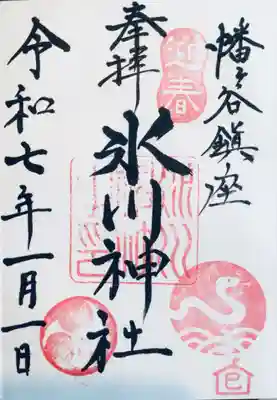 幡ヶ谷鎮座
迎春
奉拝
氷川神社
令和七年一月一日
巳